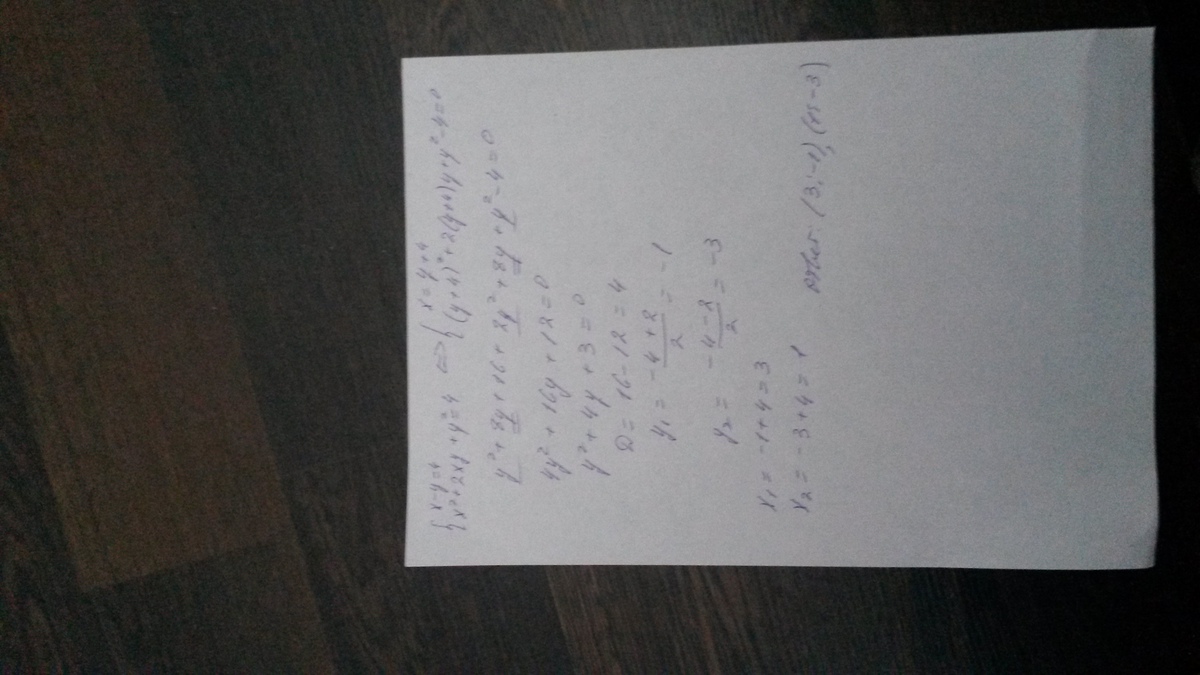 { x-y=4 <=> { x=y+4
{ x²+2xy+y²=4 { (y+4)²+2(y+4)y+y²-4=0
y²+8y+16+2y²+8y+y²-4=0
4y²+16y+12=0
y²+4y+3=0
D=16-12=4
y₁=(-4+2)/2=-1
y₂=(-4-2)/2=-3
x₁=-1+4=3
x₂=-3+4=1
Ответ: (3;-1), (1;-3)